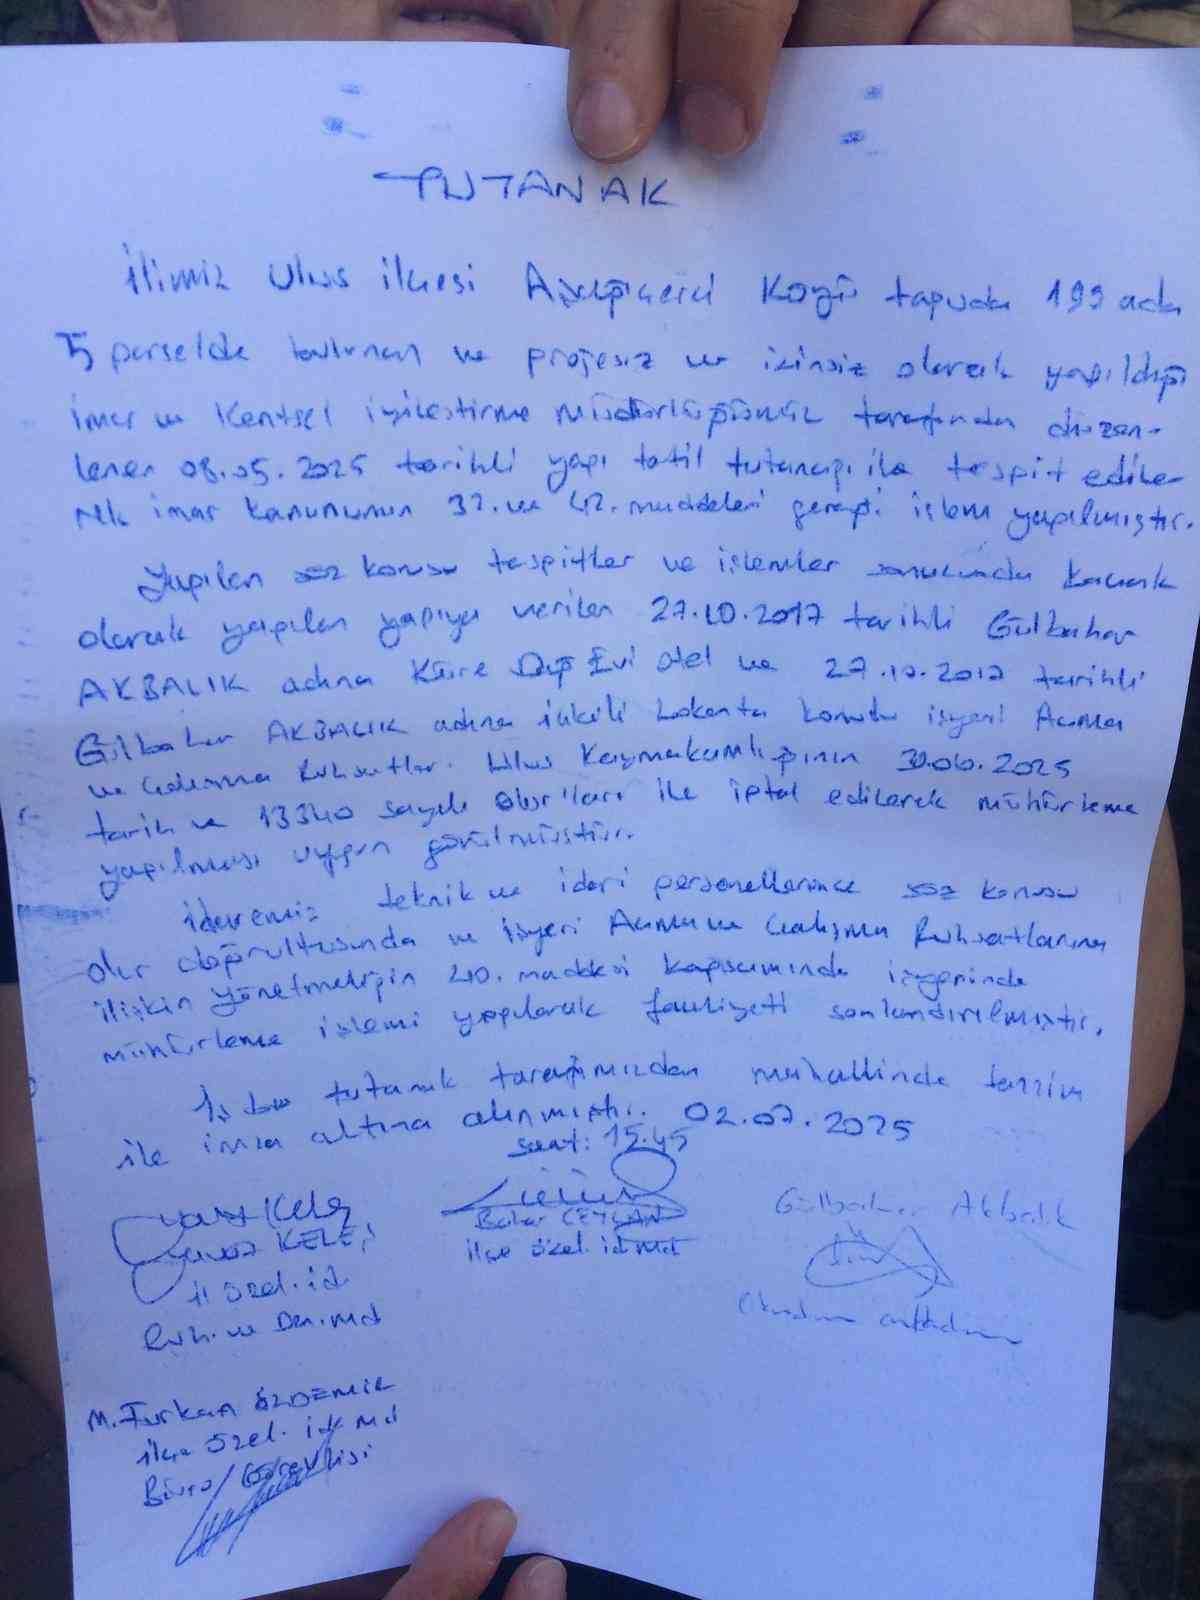 TUTANAK
İlimiz Ulus ilçesi Aşağıçerçi Köyü tapuda 199 ada
5 parselde bulunan ve projesiz ve izinsiz olarak yapıldığı
imar ve Kentsel iyileştirme Müdürlüğümüz tarafından düzen-
lenen 08.05.2025 tarihli yapı tatil tutanağı ile tespit edile-
rek imar kanununun 32. ve 42. maddeleri gereği işlem yapılmıştır.
Yapılan söz konusu tespitler ve işlemler sonucunda kaçak
olarak yapılan yapıya verilen 27.10.2017 tarihli Gülbahar
AKBALIK adına Küre Dağ Evi Otel ve 27.10.2017 tarihli
Gülbahar AKBALIK adına içkili Lokanta konulu işyeri Açma
ve Çalışma Ruhsatları Ulus Kaymakamlığının 30.06.2025
tarih ve 13340 sayılı Olur'ları ile iptal edilerek mühürleme
yapılması uygun görülmüştür.
idaremiz teknik ve idari personellerince söz konusu
olur doğrultusunda ve işyeri Açma ve Çalışma Ruhsatlarına
ilişkin yönetmeliğin 40. maddesi kapsamında işyerinde
mühürleme işlemi yapılarak faaliyeti sonlandırılmıştır.
İş bu tutanak tarafımızdan mahallinde tanzim
ile imza altına alınmıştır. 02.07.2025
saat: 15.45
Yavuz Keleş Gülbahar Akbalık
Yavuz KELEŞ CEYLAN
il özel. id. ilçe özel. id Md
Ruh. ve Den. Md Okudum anladım
M. Furkan ÖZDEMİR
ilçe özel. id Md
Büro Görevlisi